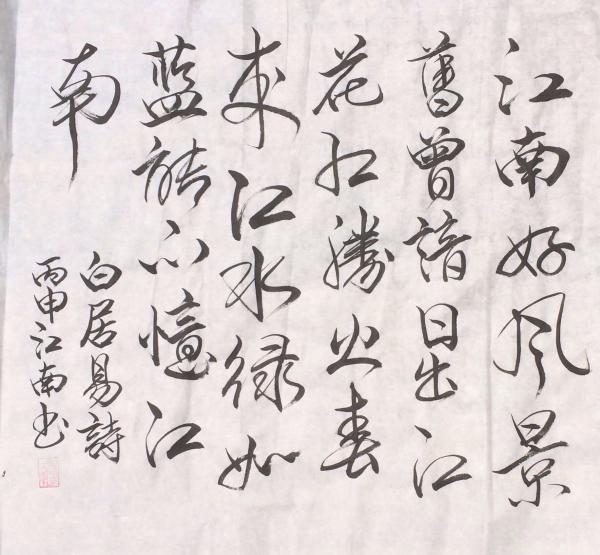 江南好风景
舊曾諳日出江
花红勝火春
来江水绿如
蓝能不憶江
南
白居易詩
丙申江南书